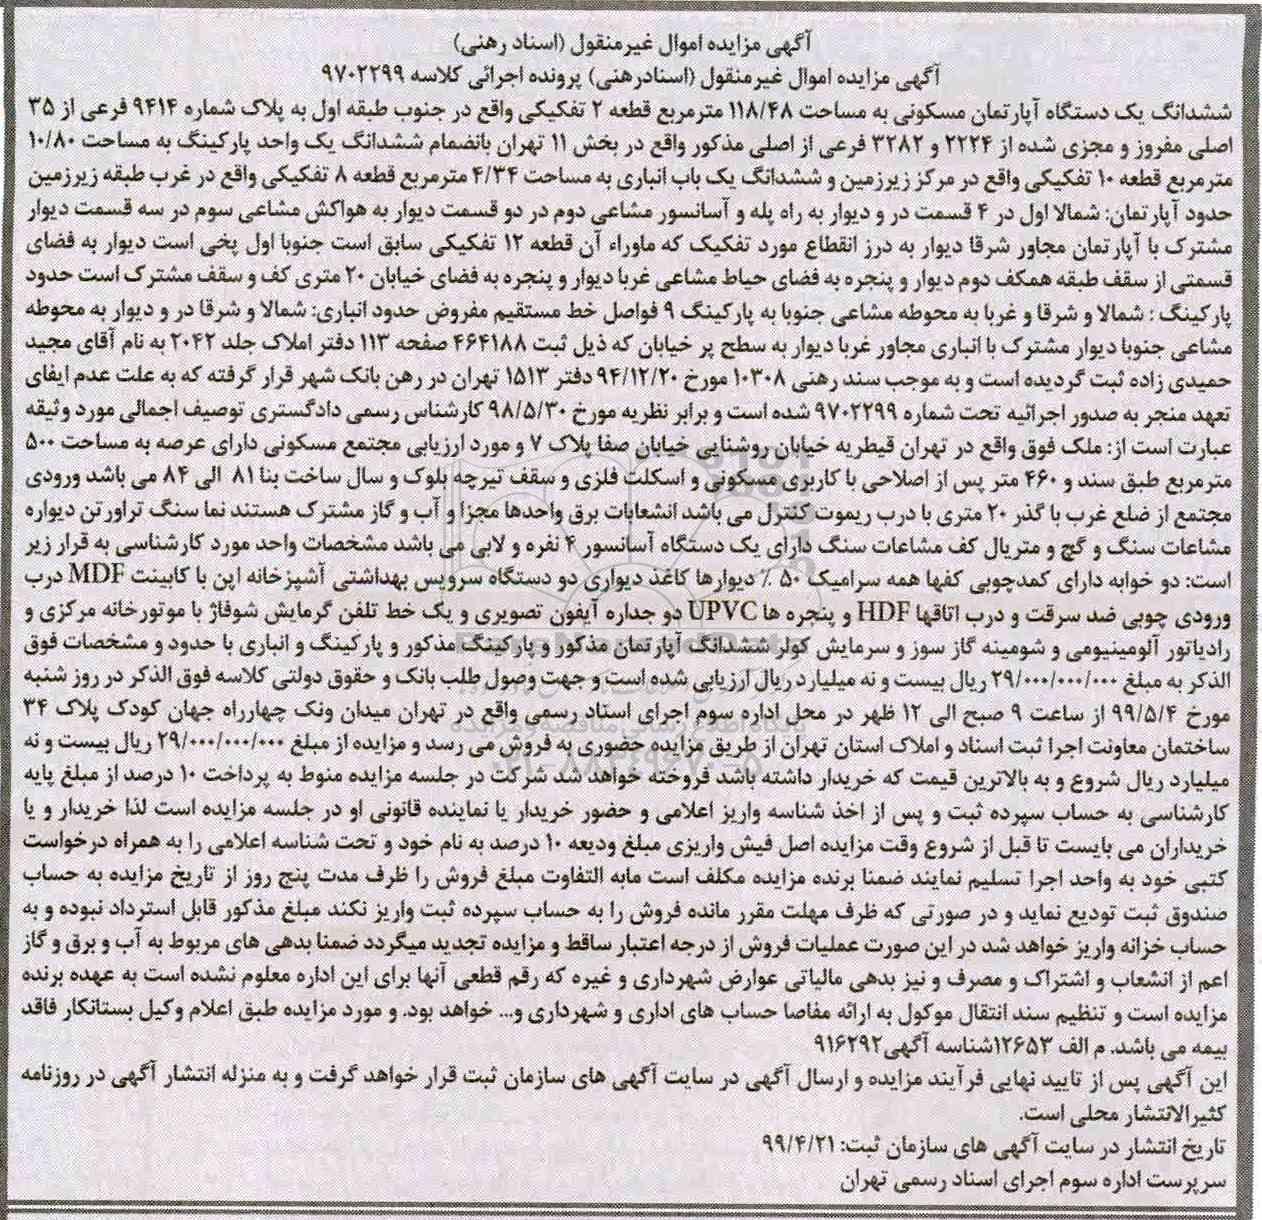 آگهی مزایده اموال غیرمنقول (اسناد رهنی)
آگهی مزایده اموال غیرمنقول (اسنادرهنی) پرونده اجرائی کلاسه ۹۷۰۲۲۹۹
ششدانگ یک دستگاه آپارتمان مسکونی به مساحت ۱۱۸/۴۸ مترمربع قطعه ۲ تفکیکی واقع در جنوب طبقه اول به پلاک شماره ۹۴۱۴ فرعی از ۳۵
اصلی مفروز و مجزی شده از ۲۲۲۴ و ۳۲۸۲ فرعی از اصلی مذکور واقع در بخش ۱۱ تهران بانضمام ششدانگ یک واحد پارکینگ به مساحت ۱۰/۸۰
مترمربع قطعه ۱۰ تفکیکی واقع در مرکز زیرزمین و ششدانگ یک باب انباری به مساحت ۴/۳۴ مترمربع قطعه ۸ تفکیکی واقع در غرب طبقه زیرزمین
حدود آپارتمان: شمالا اول در ۴ قسمت در و دیوار به راه پله و آسانسور مشاعی دوم در دو قسمت دیوار به هواکش مشاعی سوم در سه قسمت دیوار
مشترک با آپارتمان مجاور شرقا دیوار به درز انقطاع مورد تفکیک که ماوراء آن قطعه ۱۲ تفکیکی سابق است جنوبا اول پخی است دیوار به فضای
قسمتی از سقف طبقه همکف دوم دیوار و پنجره به فضای حیاط مشاعی غربا دیوار و پنجره به فضای خیابان ۲۰ متری کف و سقف مشترک است حدود
پارکینگ : شمالا و شرقا و غربا به محوطه مشاعی جنوبا به پارکینگ ۹ فواصل خط مستقیم مفروض حدود انباری: شمالا و شرقا در و دیوار به محوطه
مشاعی جنوبا دیوار مشترک با انباری مجاور غربا دیوار به سطح پر خیابان که ذیل ثبت ۴۶۴۱۸۸ صفحه ۱۱۳ دفتر املاک جلد ۲۰۴۲ به نام آقای مجید
حمیدی زاده ثبت گردیده است و به موجب سند رهنی ۱۰۳۰۸ مورخ ۹۴/۱۲/۲۰ دفتر ۱۵۱۳ تهران در رهن بانک شهر قرار گرفته که به علت عدم ایفای
تعهد منجر به صدور اجرائیه تحت شماره ۹۷۰۲۲۹۹ شده است و برابر نظریه مورخ ۹۸/۵/۳۰ کارشناس رسمی دادگستری توصیف اجمالی مورد وثیقه
عبارت است از: ملک فوق واقع در تهران قیطریه خیابان روشنایی خیابان صفا پلاک ۷ و مورد ارزیابی مجتمع مسکونی دارای عرصه به مساحت ۵۰۰
مترمربع طبق سند و ۴۶۰ متر پس از اصلاحی با کاربری مسکونی و اسکلت فلزی و سقف تیرچه بلوک و سال ساخت بنا ۸۱ الی ۸۴ می باشد ورودی
مجتمع از ضلع غرب با گذر ۲۰ متری با درب ریموت کنترل می باشد انشعابات برق واحدها مجزا و آب و گاز مشترک هستند نما سنگ تراورتن دیواره
مشاعات سنگ و گچ و متریال کف مشاعات سنگ دارای یک دستگاه آسانسور ۴ نفره و لابی می باشد مشخصات واحد مورد کارشناسی به قرار زیر
است: دو خوابه دارای کمدچوبی کفها همه سرامیک ۵۰ ٪ دیوارها کاغذ دیواری دو دستگاه سرویس بهداشتی آشپزخانه اپن با کابینت MDF درب
ورودی چوبی ضد سرقت و درب اتاقها HDF و پنجره ها UPVC دو جداره آیفون تصویری و یک خط تلفن گرمایش شوفاژ با موتورخانه مرکزی و
رادیاتور آلومینیومی و شومینه گاز سوز و سرمایش کولر ششدانگ آپارتمان مذکور و پارکینگ مذکور و پارکینگ و انباری با حدود و مشخصات فوق
الذکر به مبلغ ۲۹/۰۰۰/۰۰۰/۰۰۰ ریال بیست و نه میلیارد ریال ارزیابی شده است و جهت وصول طلب بانک و حقوق دولتی کلاسه فوق الذکر در روز شنبه
مورخ ۹۹/۵/۴ از ساعت ۹ صبح الی ۱۲ ظهر در محل اداره سوم اجرای اسناد رسمی واقع در تهران میدان ونک چهارراه جهان کودک پلاک ۳۴
ساختمان معاونت اجرا ثبت اسناد و املاک استان تهران از طریق مزایده حضوری به فروش می رسد و مزایده از مبلغ ۲۹/۰۰۰/۰۰۰/۰۰۰ ریال بیست و نه
میلیارد ریال شروع و به بالاترین قیمت که خریدار داشته باشد فروخته خواهد شد شرکت در جلسه مزایده منوط به پرداخت ۱۰ درصد از مبلغ پایه
کارشناسی به حساب سپرده ثبت و پس از اخذ شناسه واریز اعلامی و حضور خریدار یا نماینده قانونی او در جلسه مزایده است لذا خریدار و یا
خریداران می بایست تا قبل از شروع وقت مزایده اصل فیش واریزی مبلغ ودیعه ۱۰ درصد به نام خود و تحت شناسه اعلامی را به همراه درخواست
کتبی خود به واحد اجرا تسلیم نمایند ضمنا برنده مزایده مکلف است مابه التفاوت مبلغ فروش را ظرف مدت پنج روز از تاریخ مزایده به حساب
صندوق ثبت تودیع نماید و در صورتی که ظرف مهلت مقرر مانده فروش را به حساب سپرده ثبت واریز نکند مبلغ مذکور قابل استرداد نبوده و به
حساب خزانه واریز خواهد شد در این صورت عملیات فروش از درجه اعتبار ساقط و مزایده تجدید میگردد ضمنا بدهی های مربوط به آب و برق و گاز
اعم از انشعاب و اشتراک و مصرف و نیز بدهی مالیاتی عوارض شهرداری و غیره که رقم قطعی آنها برای این اداره معلوم نشده است به عهده برنده
مزایده است و تنظیم سند انتقال موکول به ارائه مفاصا حساب های اداری و شهرداری و... خواهد بود. و مورد مزایده طبق اعلام وکیل بستانکار فاقد
بیمه می باشد. م الف ۱۲۶۵۳شناسه آگهی۹۱۶۲۹۲
این آگهی پس از تایید نهایی فرآیند مزایده و ارسال آگهی در سایت آگهی های سازمان ثبت قرار خواهد گرفت و به منزله انتشار آگهی در روزنامه
کثیرالانتشار محلی است.
تاریخ انتشار در سایت آگهی های سازمان ثبت: ۹۹/۴/۲۱
سرپرست اداره سوم اجرای اسناد رسمی تهران